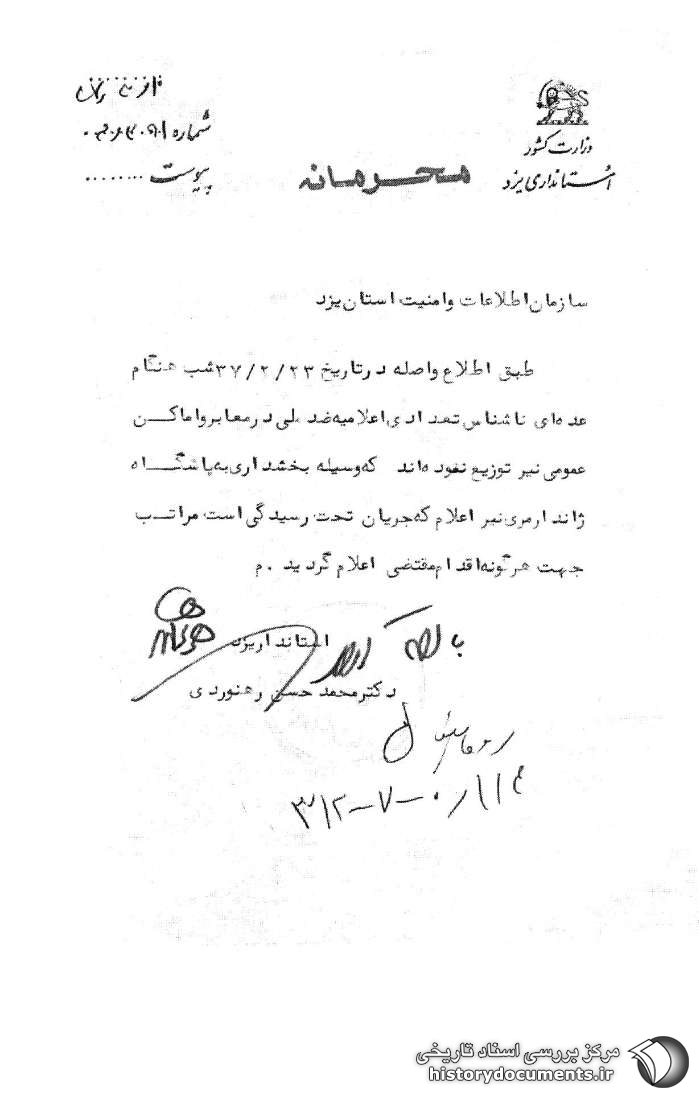 وزارت کشور
استانداری یزد
شماره
پیوست ........
محرمانه
سازمان اطلاعات وامنیت استان یزد
طبق اطلاع واصله در تاریخ ۳۷/۲/۲۳ شب هنگام
عده‌ای ناشناس تعدادی اعلامیه ضد ملی در معابر و اماکن
عمومی نیر توزیع نموده‌اند که وسیله بخشداری به پاسگاه
ژاندارمری نیر اعلام که جریان تحت رسیدگی است مراتب
جهت هرگونه اقدام مقتضی اعلام گردید .م
استاندار یزد
دکتر محمد حسن رهنوردی
۳۱۲-۷-۰
مرکز بررسی اسناد تاریخی
historydocuments.ir